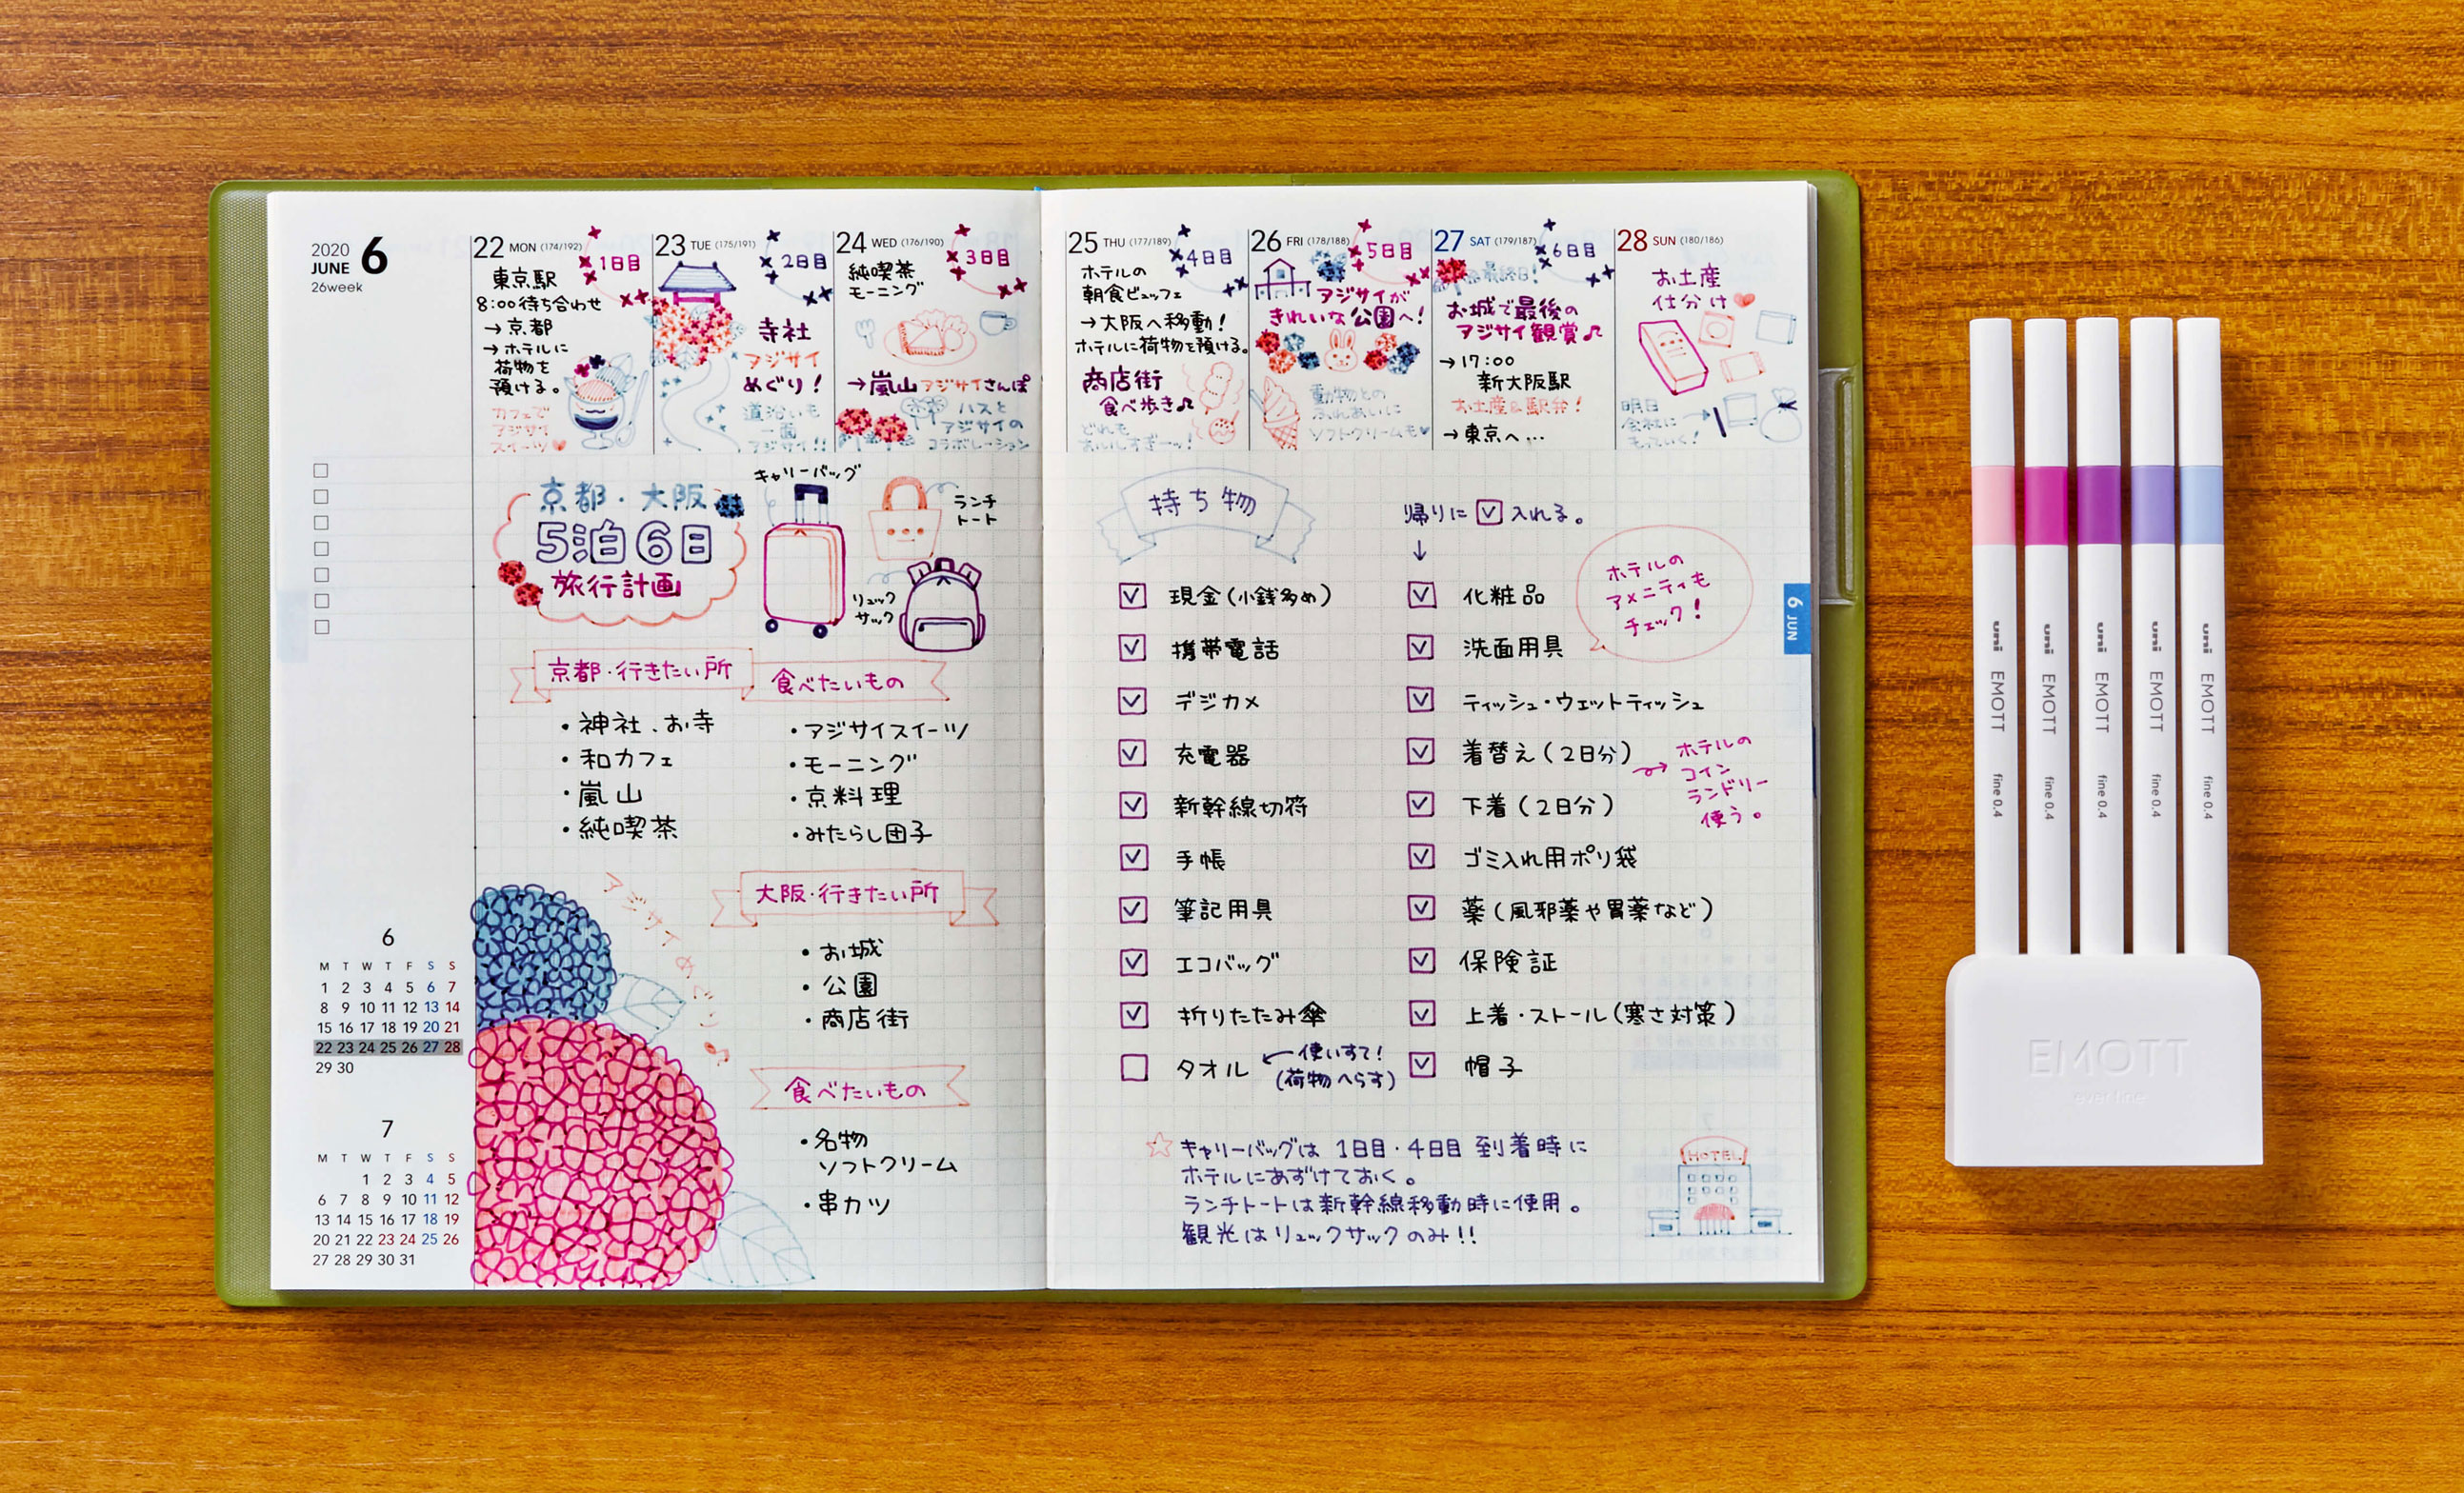 2020
JUNE 6
26week
22 MON (174/192)
1日目
東京駅
8:00待ち合わせ
→京都
→ホテルに
荷物を
預ける。
カフェで
アジサイ
スイーツ
23 TUE (175/191)
2日目
寺社
アジサイ
めぐり!
道沿いも
一面
アジサイ!!
24 WED (176/190)
3日目
純喫茶
モーニング
→嵐山アジサイさんぽ
ハスと
アジサイの
コラボレーション
25 THU (177/189)
4日目
ホテルの
朝食ビュッフェ
→大阪へ移動!
ホテルに荷物を預ける。
商店街
食べ歩き♫
どれも
おいしすぎーっ!
26 FRI (178/188)
5日目
アジサイが
きれいな公園へ!
動物との
ふれあいに
ソフトクリームも♥
27 SAT (179/187)
6日目
最終日!
お城で最後の
アジサイ観賞♫
→17:00
新大阪駅
お土産&駅弁!
→東京へ…
28 SUN (180/186)
お土産
仕分け
明日
会社に
もっていく!
京都・大阪
5泊6日
旅行計画
キャリーバッグ
ランチ
トート
リュック
サック
京都・行きたい所
・神社、お寺
・和カフェ
・嵐山
・純喫茶
食べたいもの
・アジサイスイーツ
・モーニング
・京料理
・みたらし団子
アジサイめぐり♫
大阪・行きたい所
・お城
・公園
・商店街
食べたいもの
・名物
ソフトクリーム
・串カツ
6
M T W T F S S
1 2 3 4 5 6 7
8 9 10 11 12 13 14
15 16 17 18 19 20 21
22 23 24 25 26 27 28
29 30
7
M T W T F S S
1 2 3 4 5
6 7 8 9 10 11 12
13 14 15 16 17 18 19
20 21 22 23 24 25 26
27 28 29 30 31
持ち物
現金(小銭多め)
携帯電話
デジカメ
充電器
新幹線切符
手帳
筆記用具
エコバッグ
折りたたみ傘
タオル
←使いすて!
(荷物へらす)
帰りに☑入れる。
↓
化粧品
洗面用具
ティッシュ・ウェットティッシュ
着替え(2日分)
下着(2日分)
ゴミ入れ用ポリ袋
薬(風邪薬や胃薬など)
保険証
上着・ストール(寒さ対策)
帽子
ホテルの
アメニティも
チェック!
→ホテルの
コイン
ランドリー
使う。
☆キャリーバッグは1日目・4日目 到着時に
ホテルにあずけておく。
ランチトートは新幹線移動時に使用。
観光はリュックサックのみ!!
HOTEL
6 JUN
uni EMOTT fine 0.4
uni EMOTT fine 0.4
uni EMOTT fine 0.4
uni EMOTT fine 0.4
uni EMOTT fine 0.4
EMOTT
ever fine